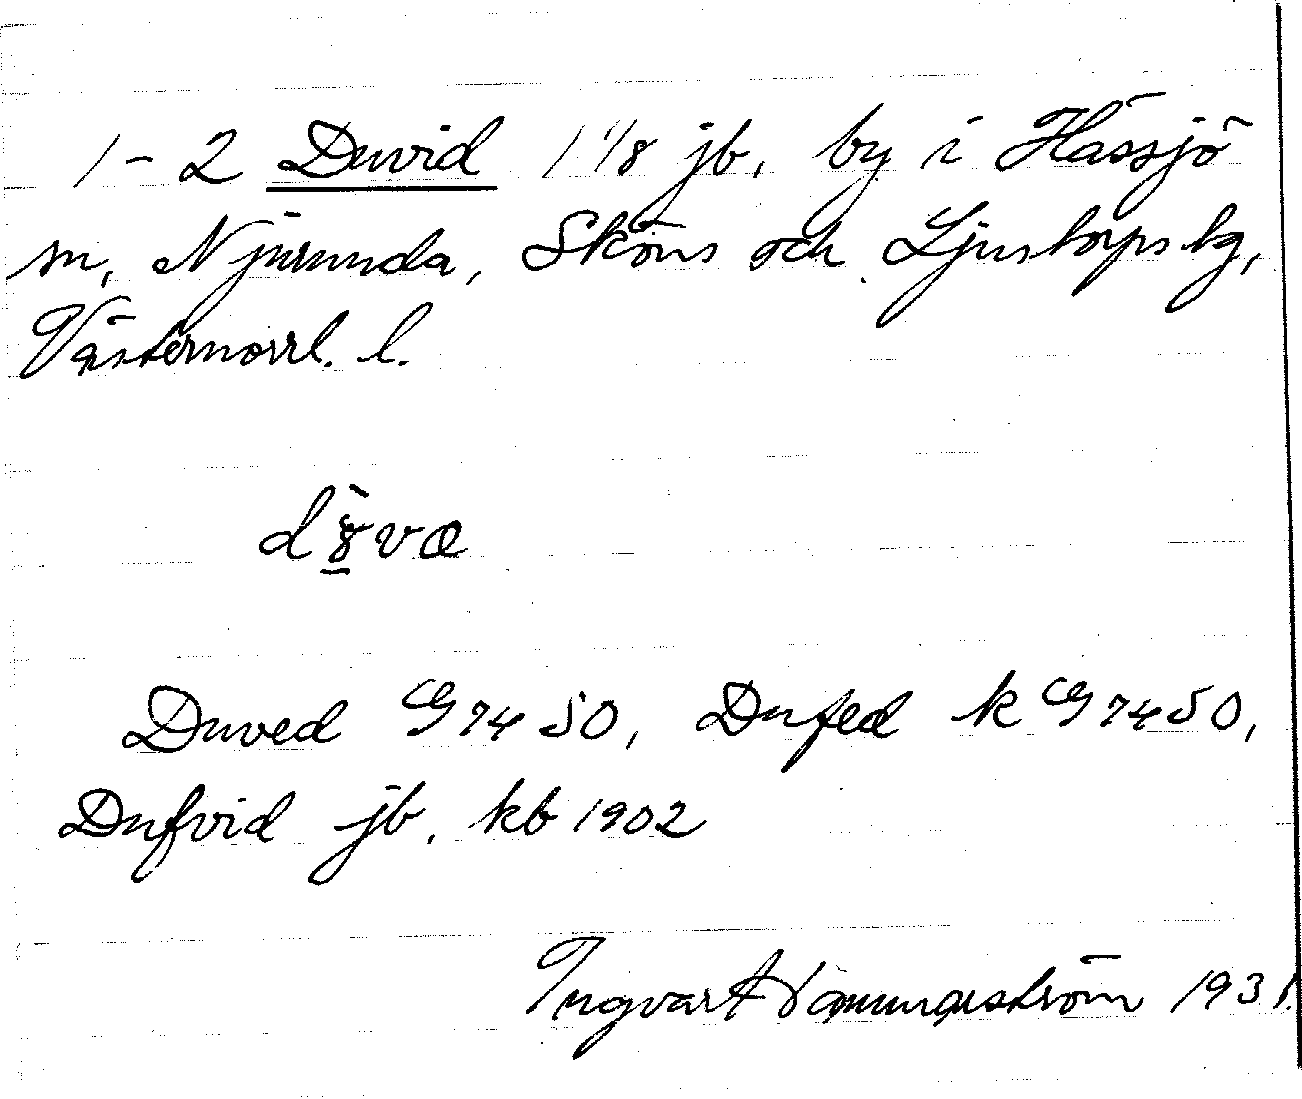 1-2 Duvid 1 1/8 jb, by i Hässjö
sn, Njurunda, Sköns och Ljustorps tg,
Västernorrl. l.
Duved G 74 50, Dufed k G 74 50,
Dufvid jb. kb 1902
Ingvart Hammarström 1931.